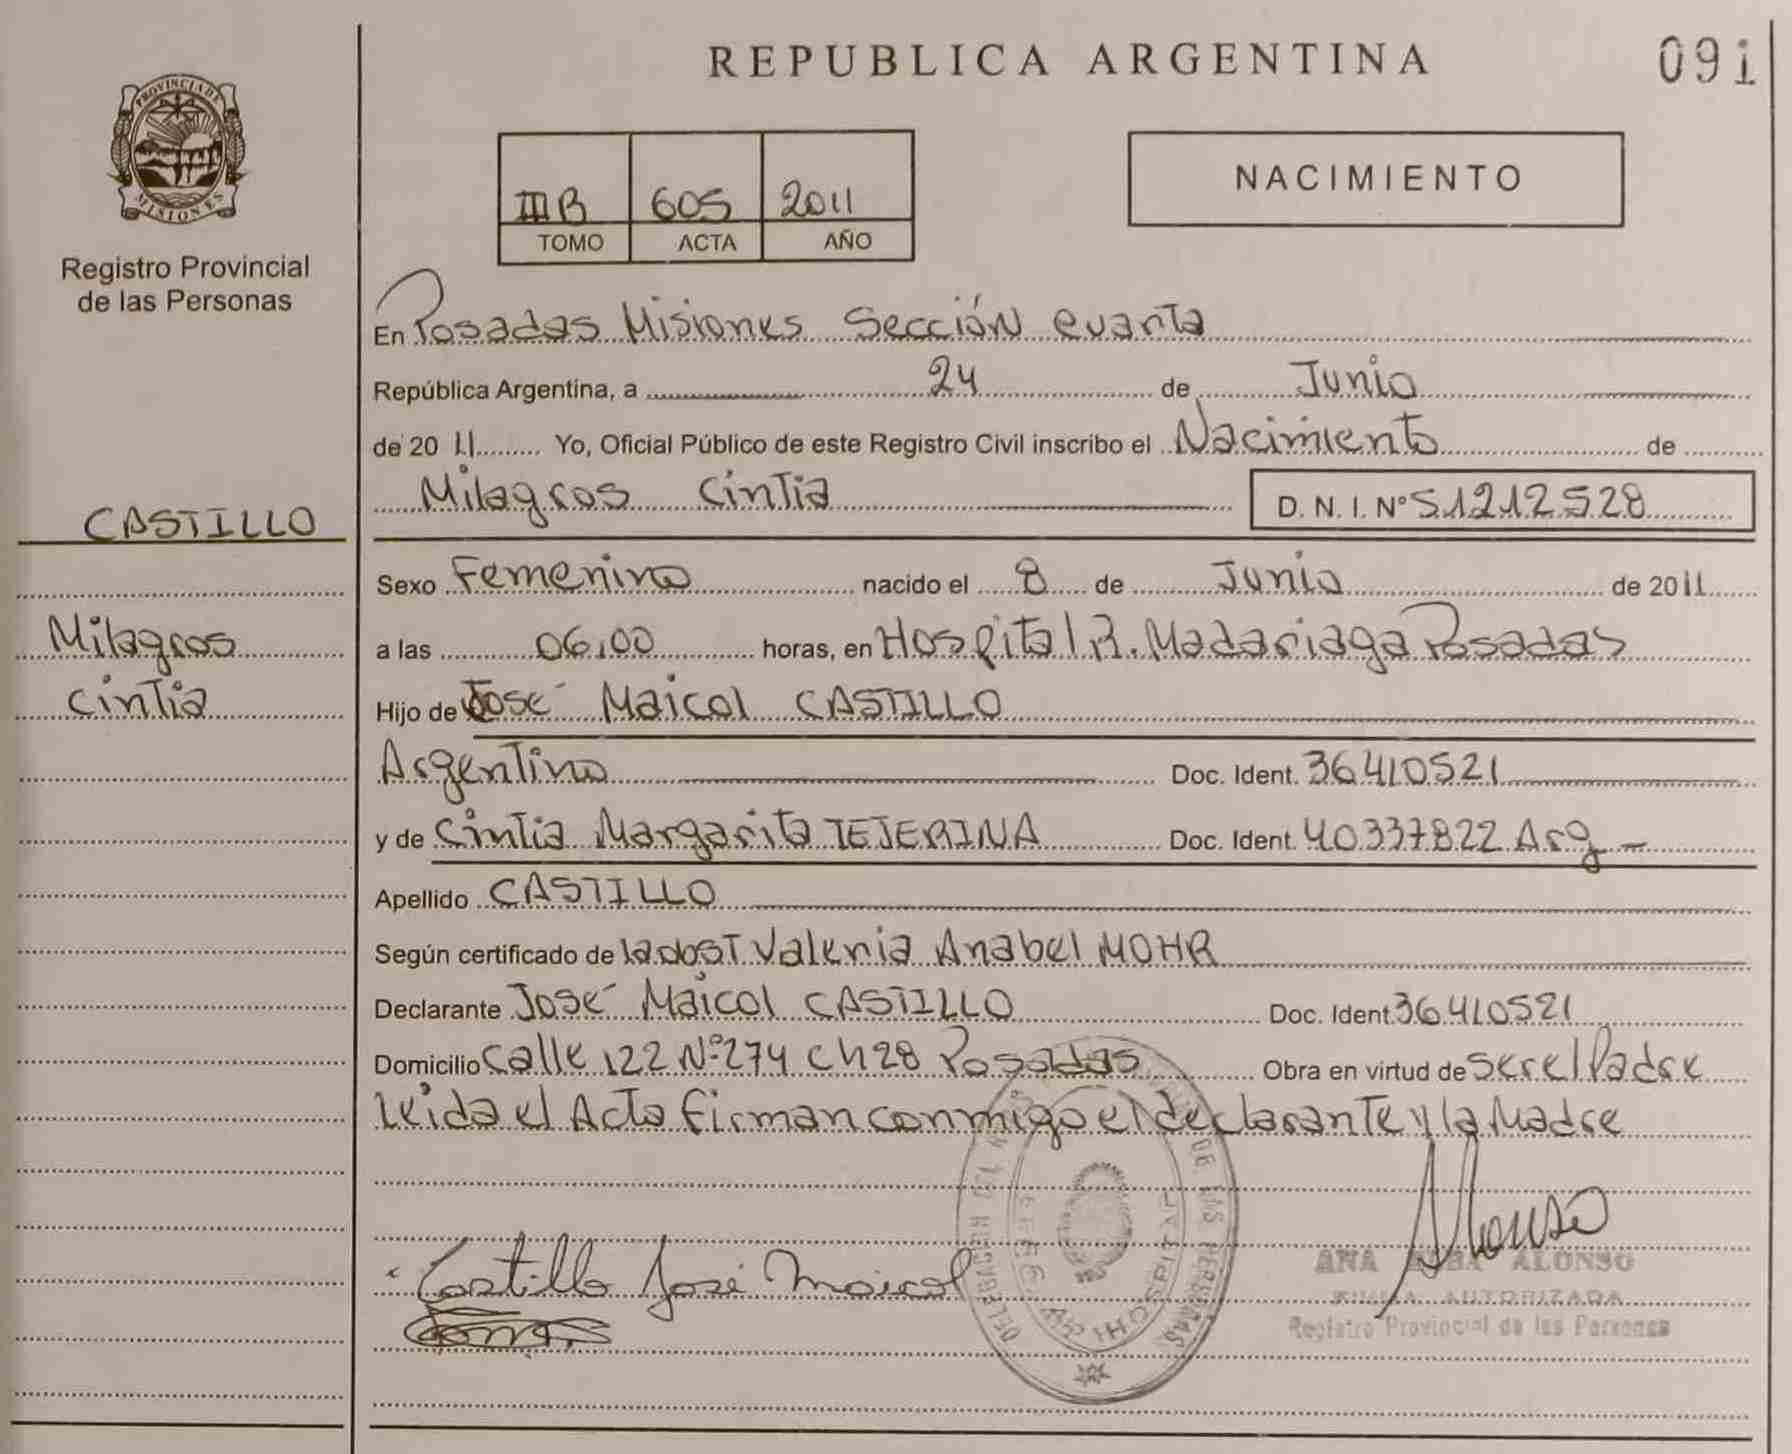 REPUBLICA ARGENTINA
091
PROVINCIA DE MISIONES
Registro Provincial
de las Personas
IIIB 605 2011
TOMO ACTA AÑO
NACIMIENTO
En Posadas Misiones Sección cuarta
República Argentina, a 24 de Junio
de 2011 Yo, Oficial Público de este Registro Civil inscribo el Nacimiento de
Milagros Cintia D. N. I. Nº 51212528
CASTILLO
Milagros
Cintia
Sexo Femenino nacido el 8 de Junio de 2011
a las 06,00 horas, en Hospital R. Madariaga Posadas
Hijo de José Maicol CASTILLO
Argentino Doc. Ident. 36410521
y de Cintia Margarita TEJERINA Doc. Ident. 40337822 Arg -
Apellido CASTILLO
Según certificado de la obst Valeria Anabel MOHR
Declarante José Maicol CASTILLO Doc. Ident. 36410521
Domicilio Calle 122 Nº 274 Ch 28 Posadas Obra en virtud de ser el Padre
leida el Acta firman conmigo el declarante y la Madre
Castillo José Maicol
Alonso
ANA ALONSO
AUTORIZADA
Registro Provincial de las Personas
DE LAS PERSONAS
HOSPITAL